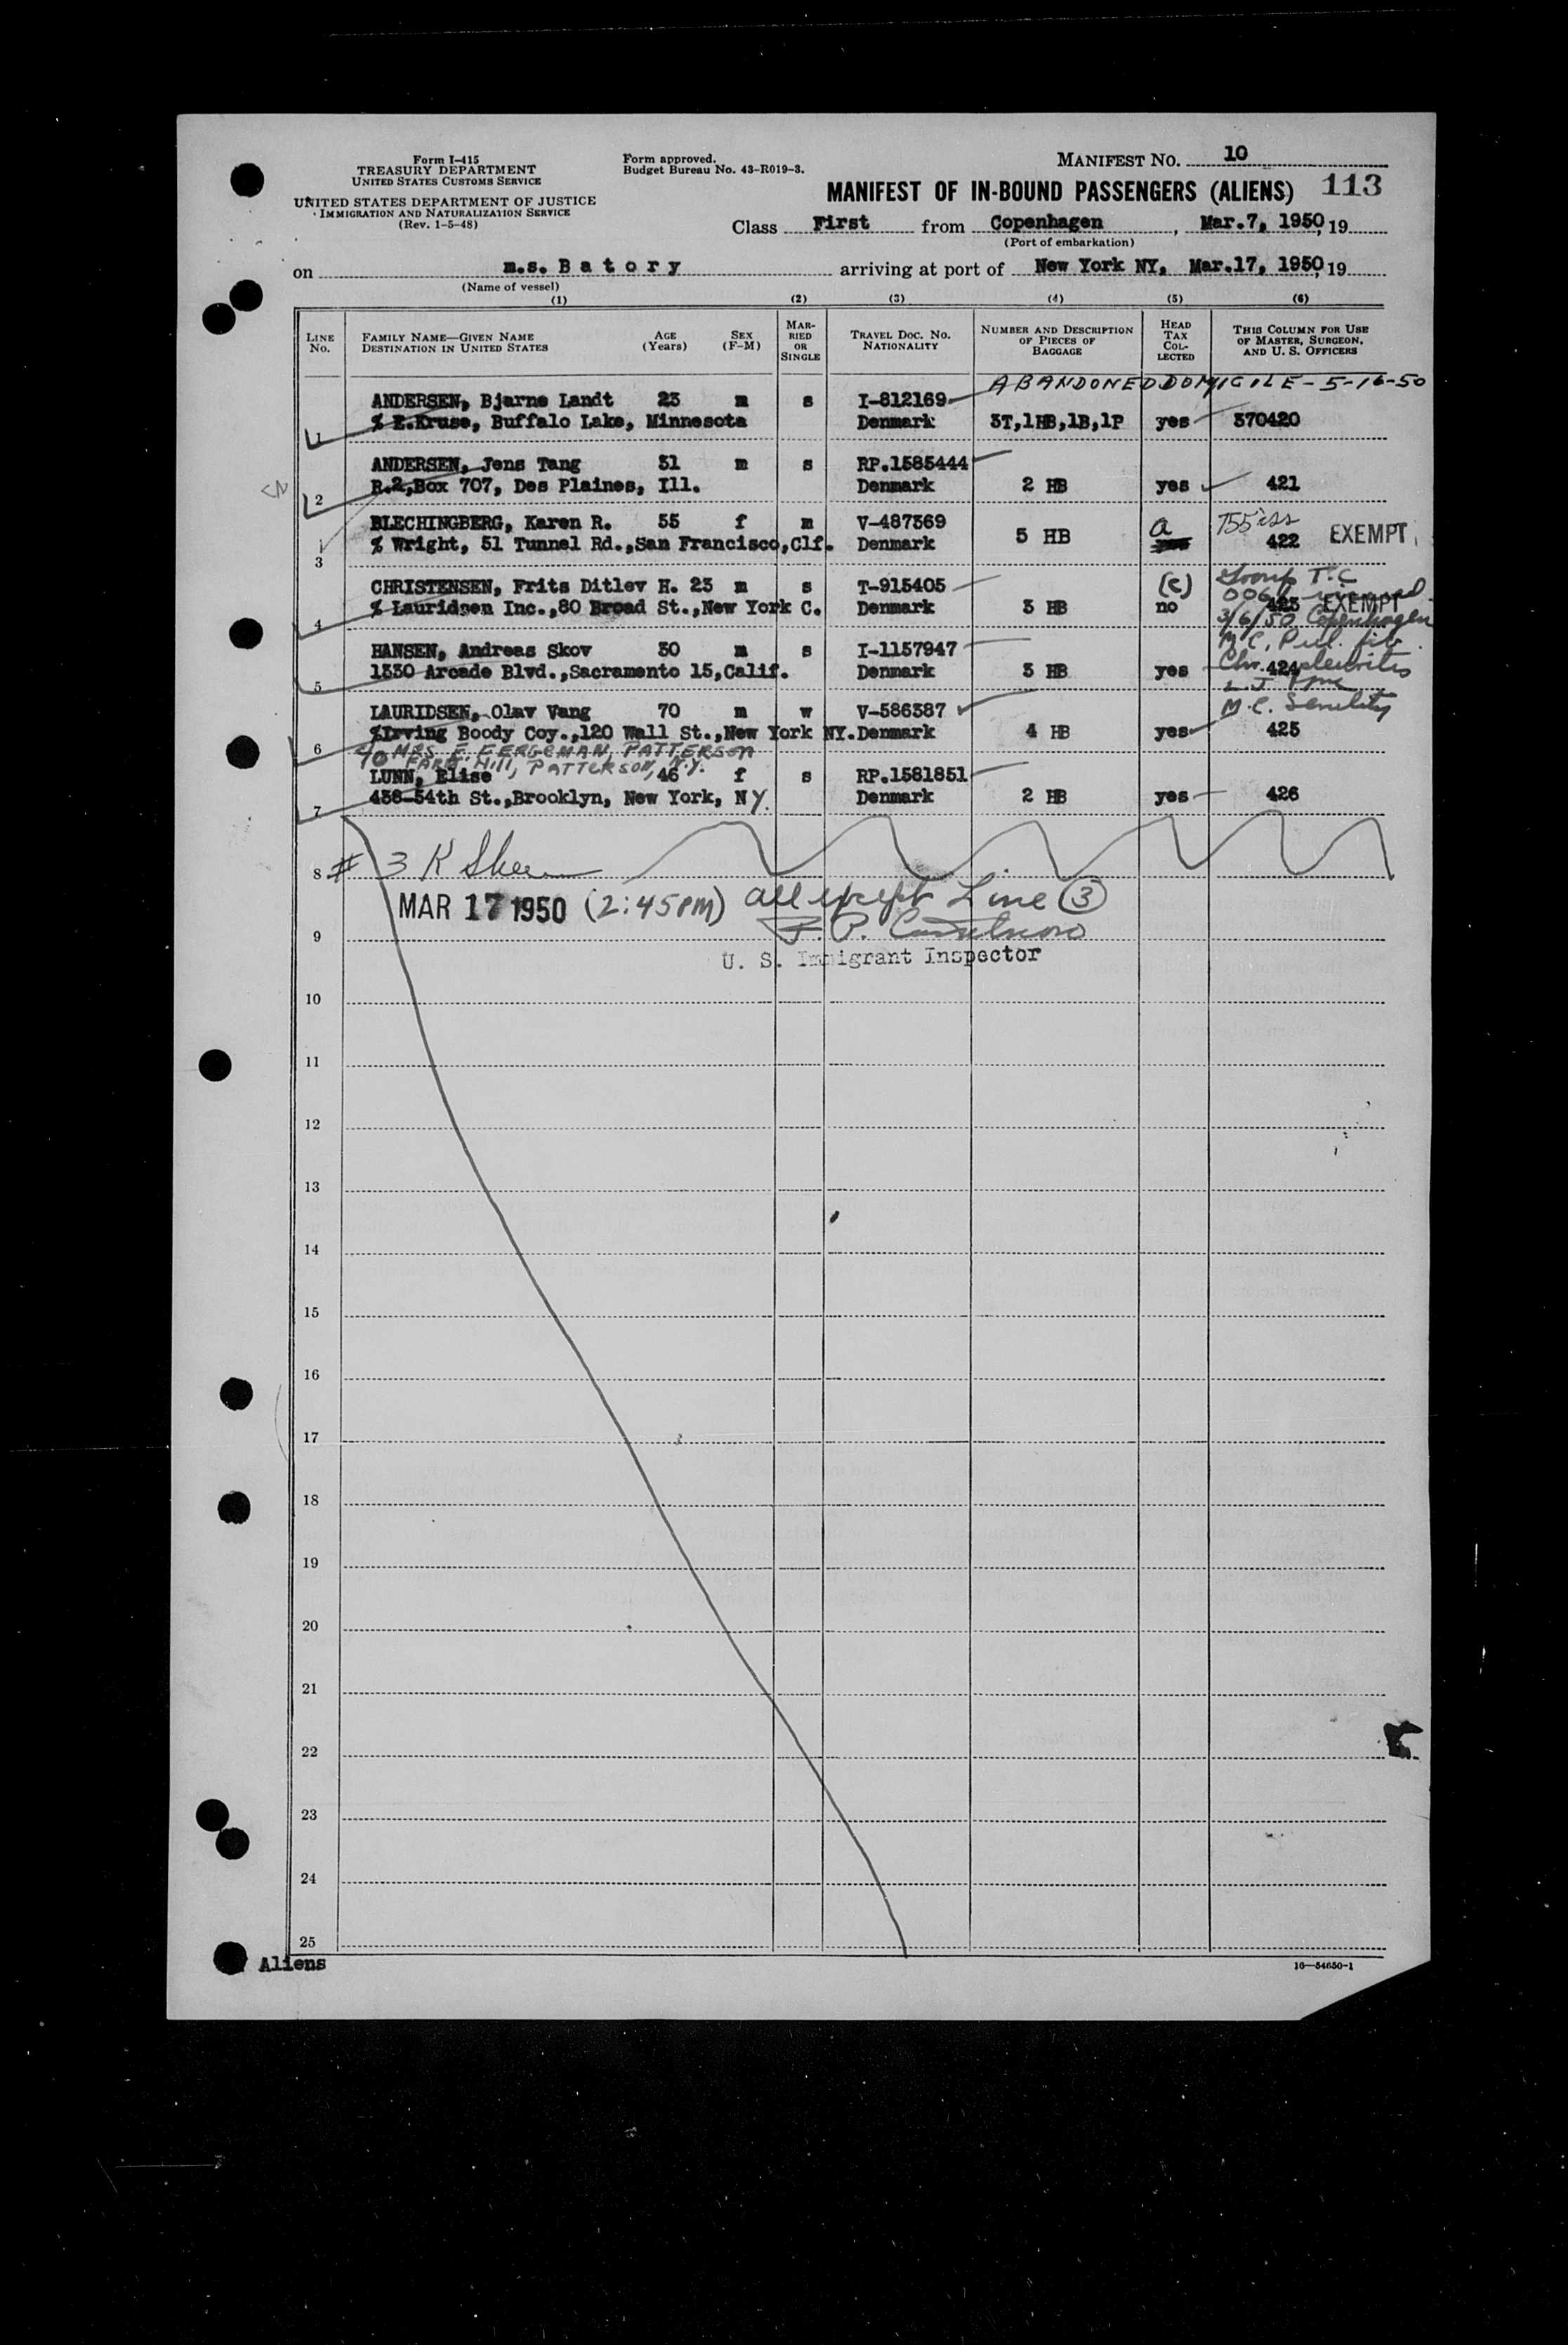 Form I-415
TREASURY DEPARTMENT
UNITED STATES CUSTOMS SERVICE
UNITED STATES DEPARTMENT OF JUSTICE
IMMIGRATION AND NATURALIZATION SERVICE
(Rev. 1-5-48)
Form approved.
Budget Bureau No. 43-R019-3.
MANIFEST NO. 10
MANIFEST OF IN-BOUND PASSENGERS (ALIENS) 113
Class First from Copenhagen, Mar.7, 1950, 19
(Port of embarkation)
on m.s. Batory arriving at port of New York NY, Mar.17, 1950, 19
(Name of vessel)
(1) (2) (3) (4) (5) (6)
LINE NO. FAMILY NAME—GIVEN NAME DESTINATION IN UNITED STATES AGE (Years) SEX (F-M) MARRIED OR SINGLE TRAVEL DOC. NO. NATIONALITY NUMBER AND DESCRIPTION OF PIECES OF BAGGAGE HEAD TAX COLLECTED THIS COLUMN FOR USE OF MASTER, SURGEON, AND U. S. OFFICERS
ABANDONED DOMICILE - 5-16-50
ANDERSEN, Bjarne Landt 23 m s I-812169
1 % E.Kruse, Buffalo Lake, Minnesota Denmark 3T,1HB,1B,1P yes 370420
ANDERSEN, Jens Tang 31 m s RP.1585444
2 R.2,Box 707, Des Plaines, Ill. Denmark 2 HB yes 421
BLECHINGBERG, Karen R. 55 f m V-487369 a
3 % Wright, 51 Tunnel Rd.,San Francisco,Clf. Denmark 5 HB yes 422 EXEMPT
CHRISTENSEN, Frits Ditlev H. 23 m s T-915405 (c) T.C
4 % Lauridsen Inc.,80 Broad St.,New York C. Denmark 3 HB no 423 EXEMPT
3/6/50 Copenhagen
HANSEN, Andreas Skov 30 m s I-1157947 M.C.
5 1330 Arcade Blvd.,Sacramento 15,Calif. Denmark 3 HB yes 424
LAURIDSEN, Olav Vang 70 m w V-586387 M.C. Senility
6 %Irving Boody Coy.,120 Wall St.,New York NY. Denmark 4 HB yes 425
% MRS. E. FERGEMAN, PATTERSON
FARM Hill, PATTERSON, N.Y.
LUNN, Elise 46 f s RP.1581851
7 438-54th St.,Brooklyn, New York, NY. Denmark 2 HB yes 426
8 # 3 K
MAR 17 1950 (2:45PM) all except Line 3
9
U. S. Immigrant Inspector
10
11
12
13
14
15
16
17
18
19
20
21
22
23
24
25
Aliens
16—54650-1